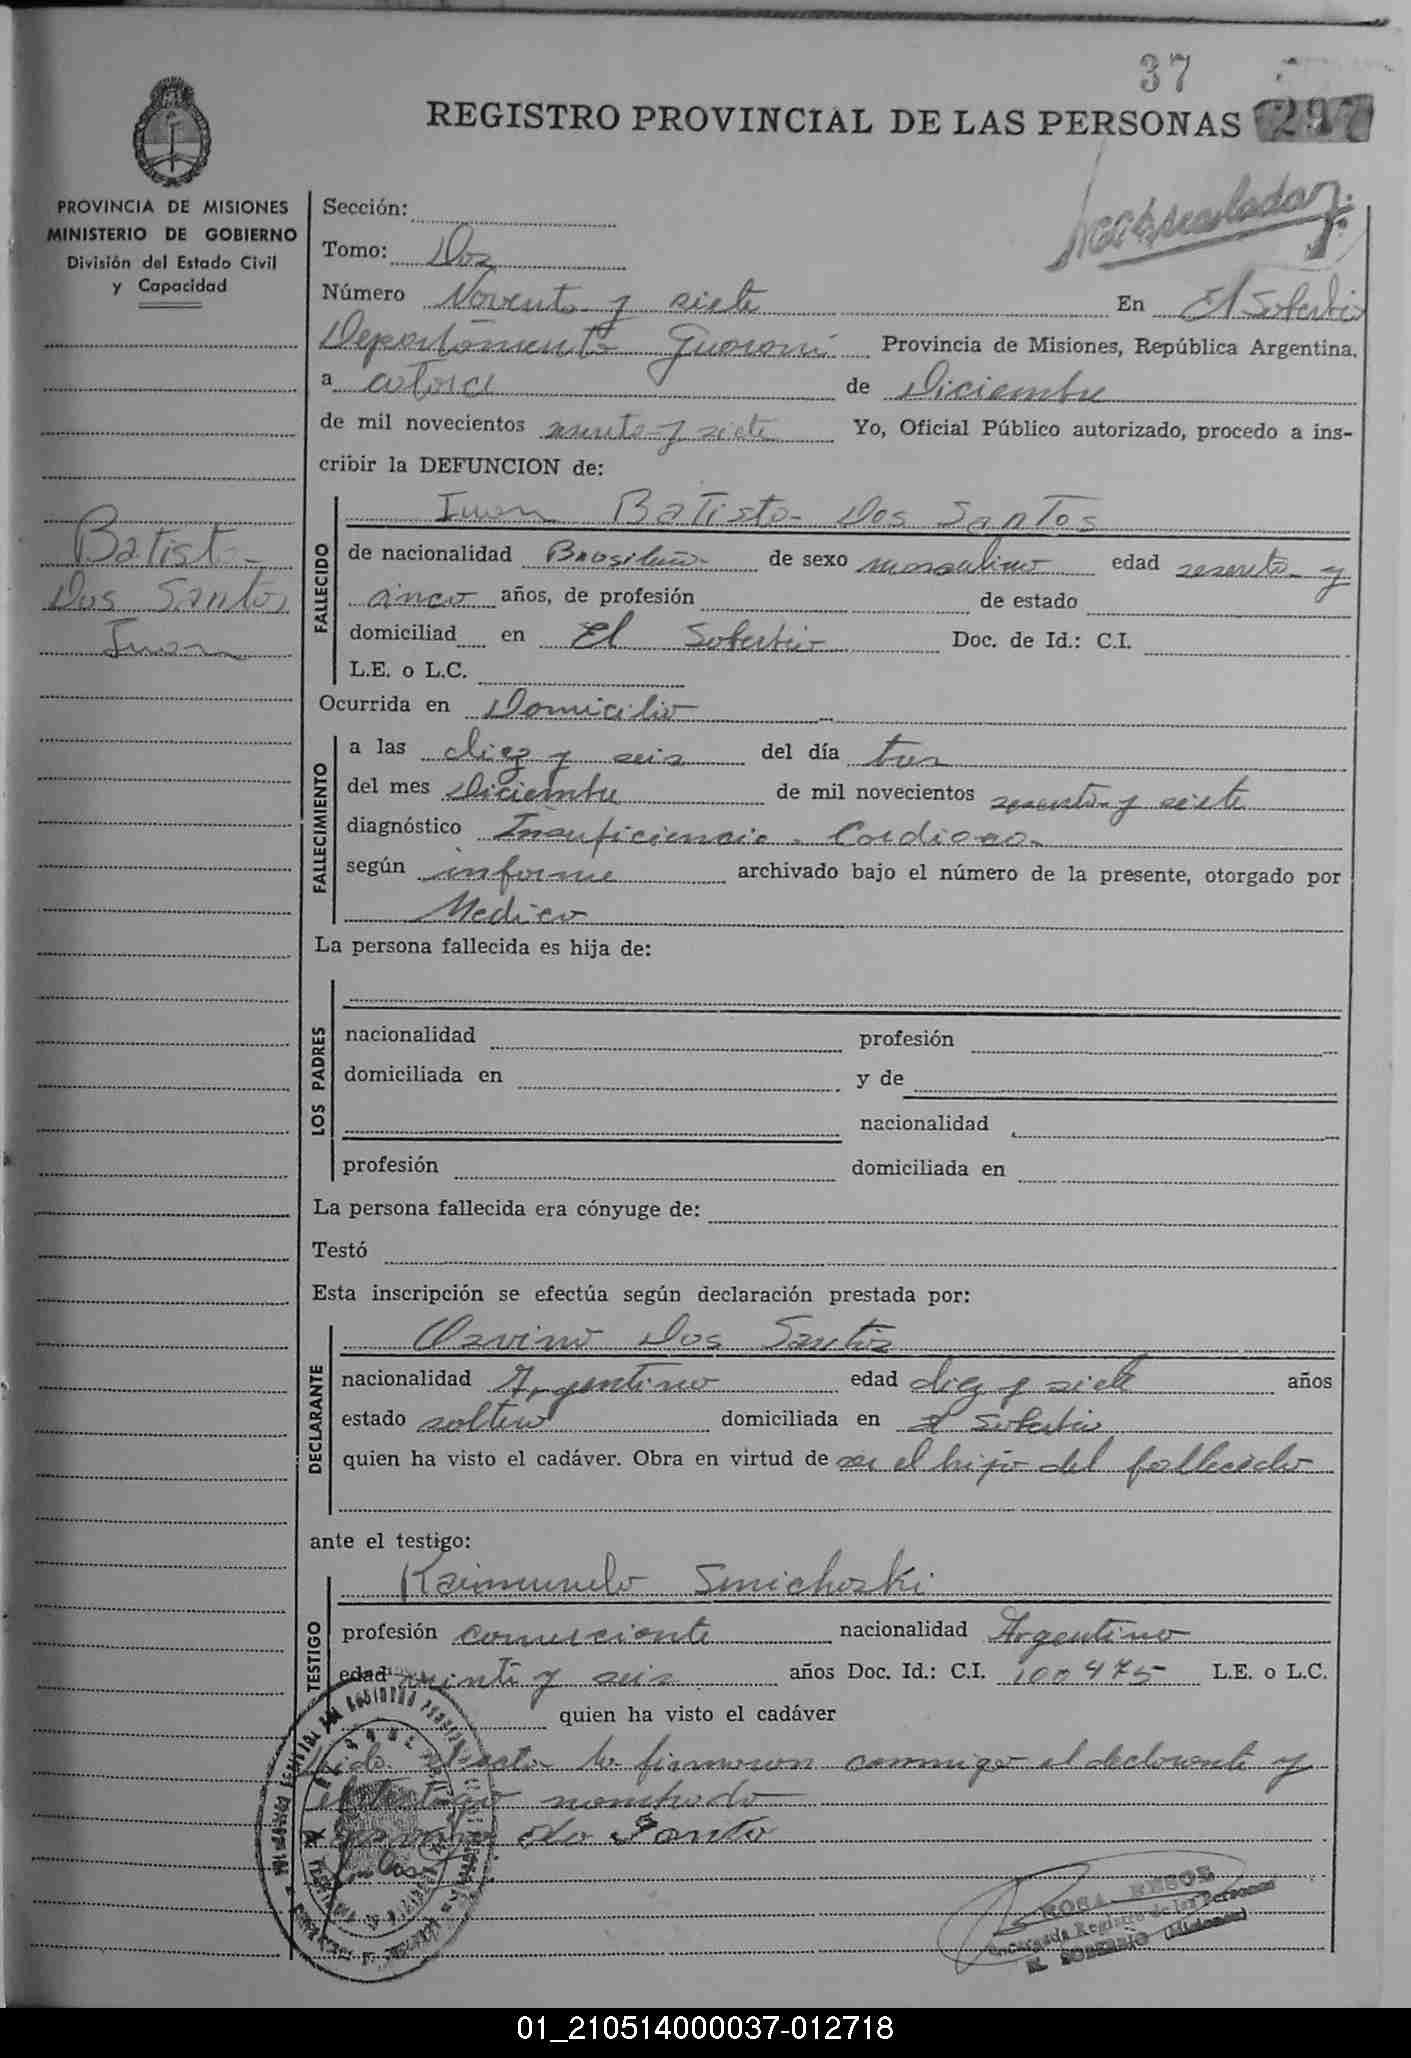 37
REGISTRO PROVINCIAL DE LAS PERSONAS 297
PROVINCIA DE MISIONES
MINISTERIO DE GOBIERNO
División del Estado Civil
y Capacidad
Batista
Dos Santos
Juan
Sección:
Tomo: Dos
Número Noventa y siete En El Soberbio
Departamento Guaraní Provincia de Misiones, República Argentina,
a catorce de Diciembre
de mil novecientos sesenta y siete Yo, Oficial Público autorizado, procedo a ins-
cribir la DEFUNCION de:
FALLECIDO
Juan Batista Dos Santos
de nacionalidad Brasileña de sexo masculino edad sesenta y
cinco años, de profesión de estado
domiciliad en El Soberbio Doc. de Id.: C.I.
L.E. o L.C.
Ocurrida en Domicilio
FALLECIMIENTO
a las diez y seis del día tres
del mes Diciembre de mil novecientos sesenta y siete
diagnóstico Insuficiencia Cardiaca
según informe archivado bajo el número de la presente, otorgado por
Medico
La persona fallecida es hija de:
LOS PADRES
nacionalidad profesión
domiciliada en y de
nacionalidad
profesión domiciliada en
La persona fallecida era cónyuge de:
Testó
Esta inscripción se efectúa según declaración prestada por:
DECLARANTE
Dos Santos
nacionalidad Argentino edad diez y siete años
estado soltero domiciliada en El Soberbio
quien ha visto el cadáver. Obra en virtud de ser el hijo del fallecido
ante el testigo:
TESTIGO
Raimundo Smichoski
profesión comerciante nacionalidad Argentino
edad veinte y seis años Doc. Id.: C.I. 100475 L.E. o L.C.
quien ha visto el cadáver
Leida el acta la firmaron conmigo el declarante y
el testigo nombrado
do Santo
ROSA
Encargada Registro de las Personas
EL SOBERBIO (Misiones)
01_210514000037-012718